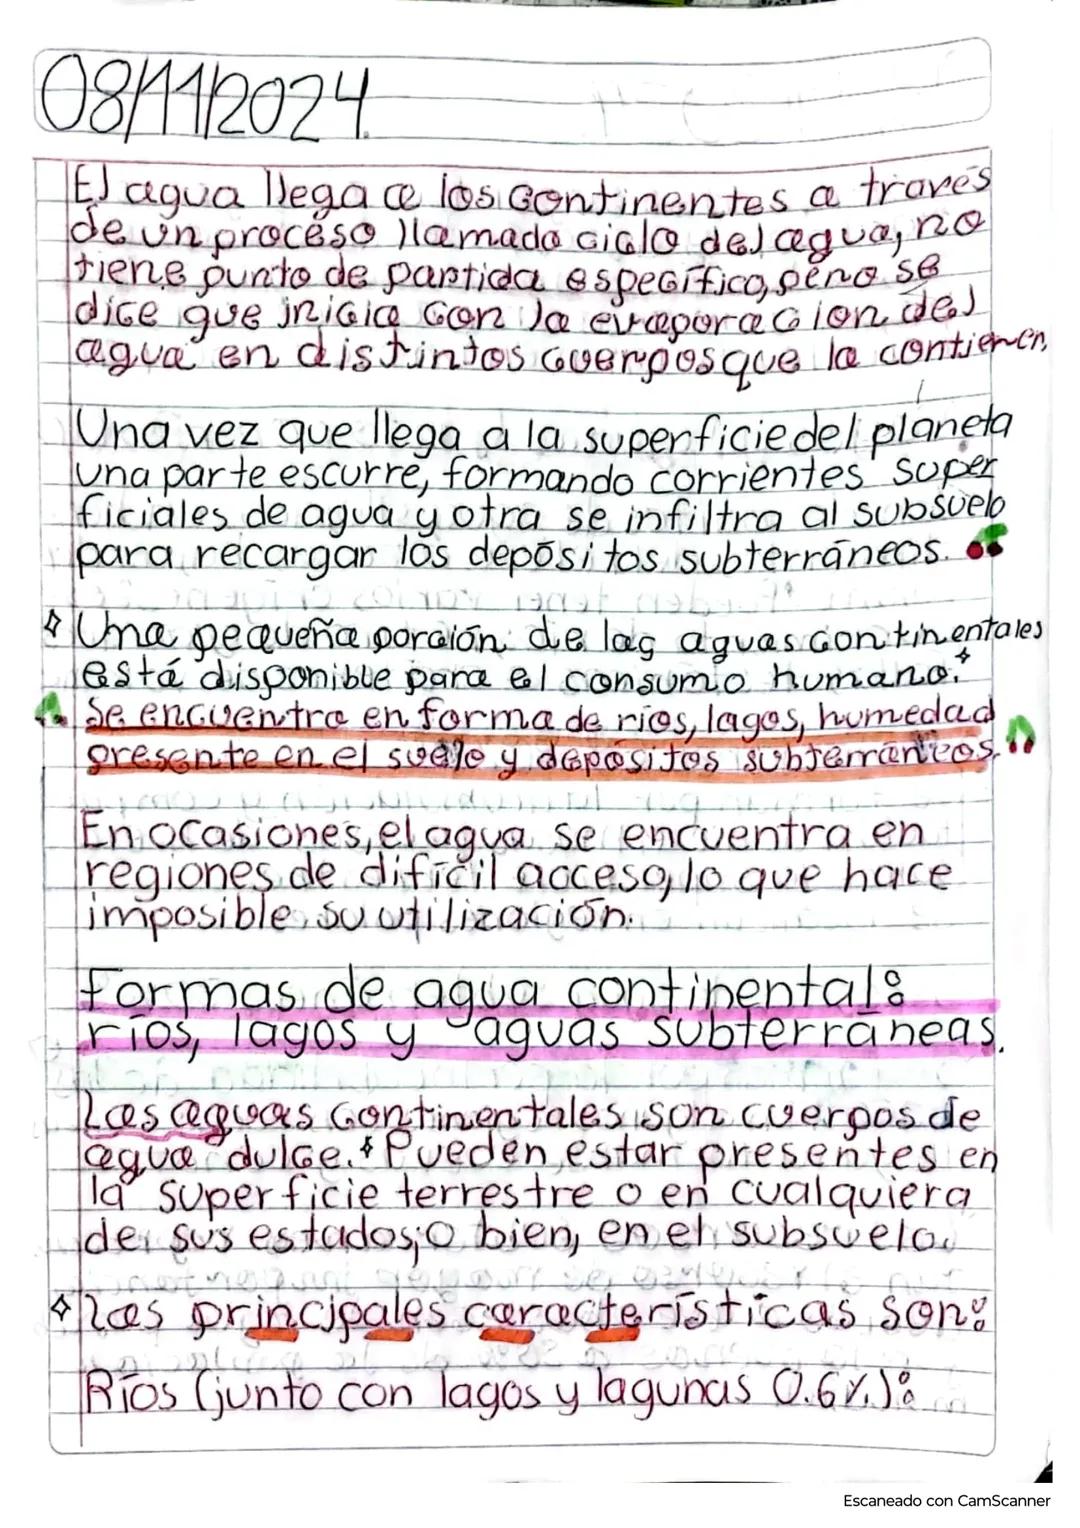 08/11/2024
El agua llega a los continentes a través
de un proceso llamado ciclo del agua, no
tiene punto de partida específico, pero se
dice que inicia con la evaporación del
agua en distintos cuerpos que la contienen,
Una vez que llega a la superficie del planeta
una parte escurre, formando corrientes super
ficiales de agua y otra se infiltra al subsuelo
para recargar los depósitos subterráneos.
Una pequeña porción de las aguas continentales
está disponible para el consumo humano.
Se encuentra en forma de ríos, lagos, humedad
presente en el suelo y depósitos subterráneos.
En ocasiones, el agua se encuentra en
regiones de difícil acceso, lo que hace
imposible su utilización.
Formas de agua continental:
ríos, lagos y aguas subterráneas.
Las aguas continentales son cuerpos de
agua dulce. Pueden estar presentes en
la superficie terrestre o en cualquiera
de sus estados; o bien, en el subsuelo.
Las principales características son:
Ríos (junto con lagos y lagunas 0.6%):
Escaneado con CamScanner